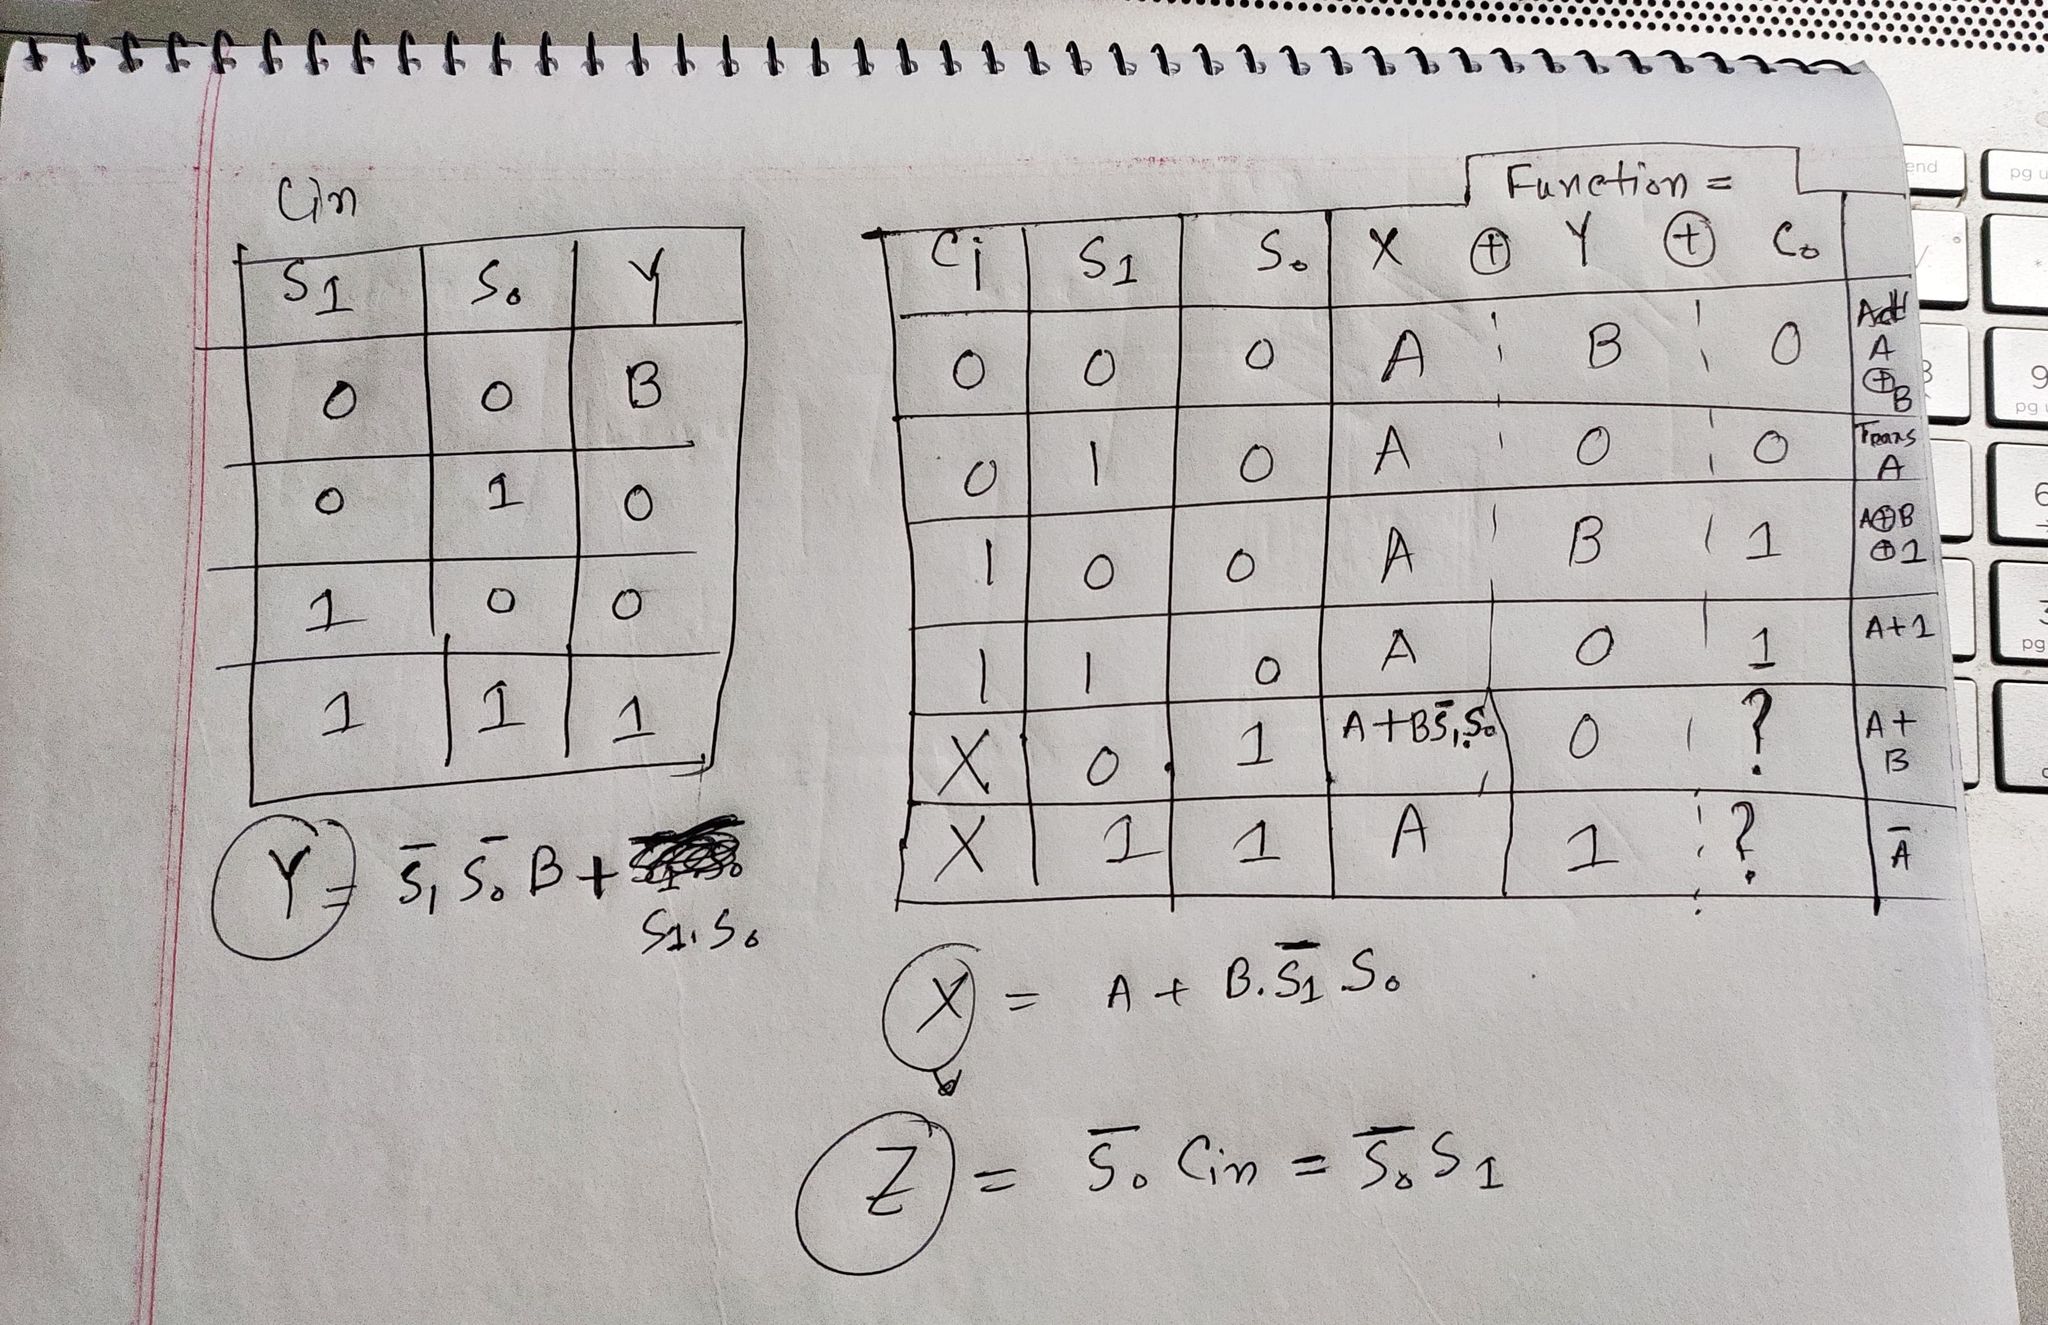 Cin
S1 S0 Y
0 0 B
0 1 0
1 0 0
1 1 1
Y = S̅1 S̅0 B +
S1.S0
Function =
Ci S1 S0 X ⊕ Y ⊕ C0
0 0 0 A B 0 Add A ⊕ B
0 1 0 A 0 0 Trans A
1 0 0 A B 1 A⊕B ⊕1
1 1 0 A 0 1 A+1
X 0 1 A+BS̅1.S0 0 ? A+ B
X 1 1 A 1 ? A̅
X = A + B.S̅1 S0
Z = S̅0 Cin = S̅0 S1
end
pg u
9
pg u
6
3
pg